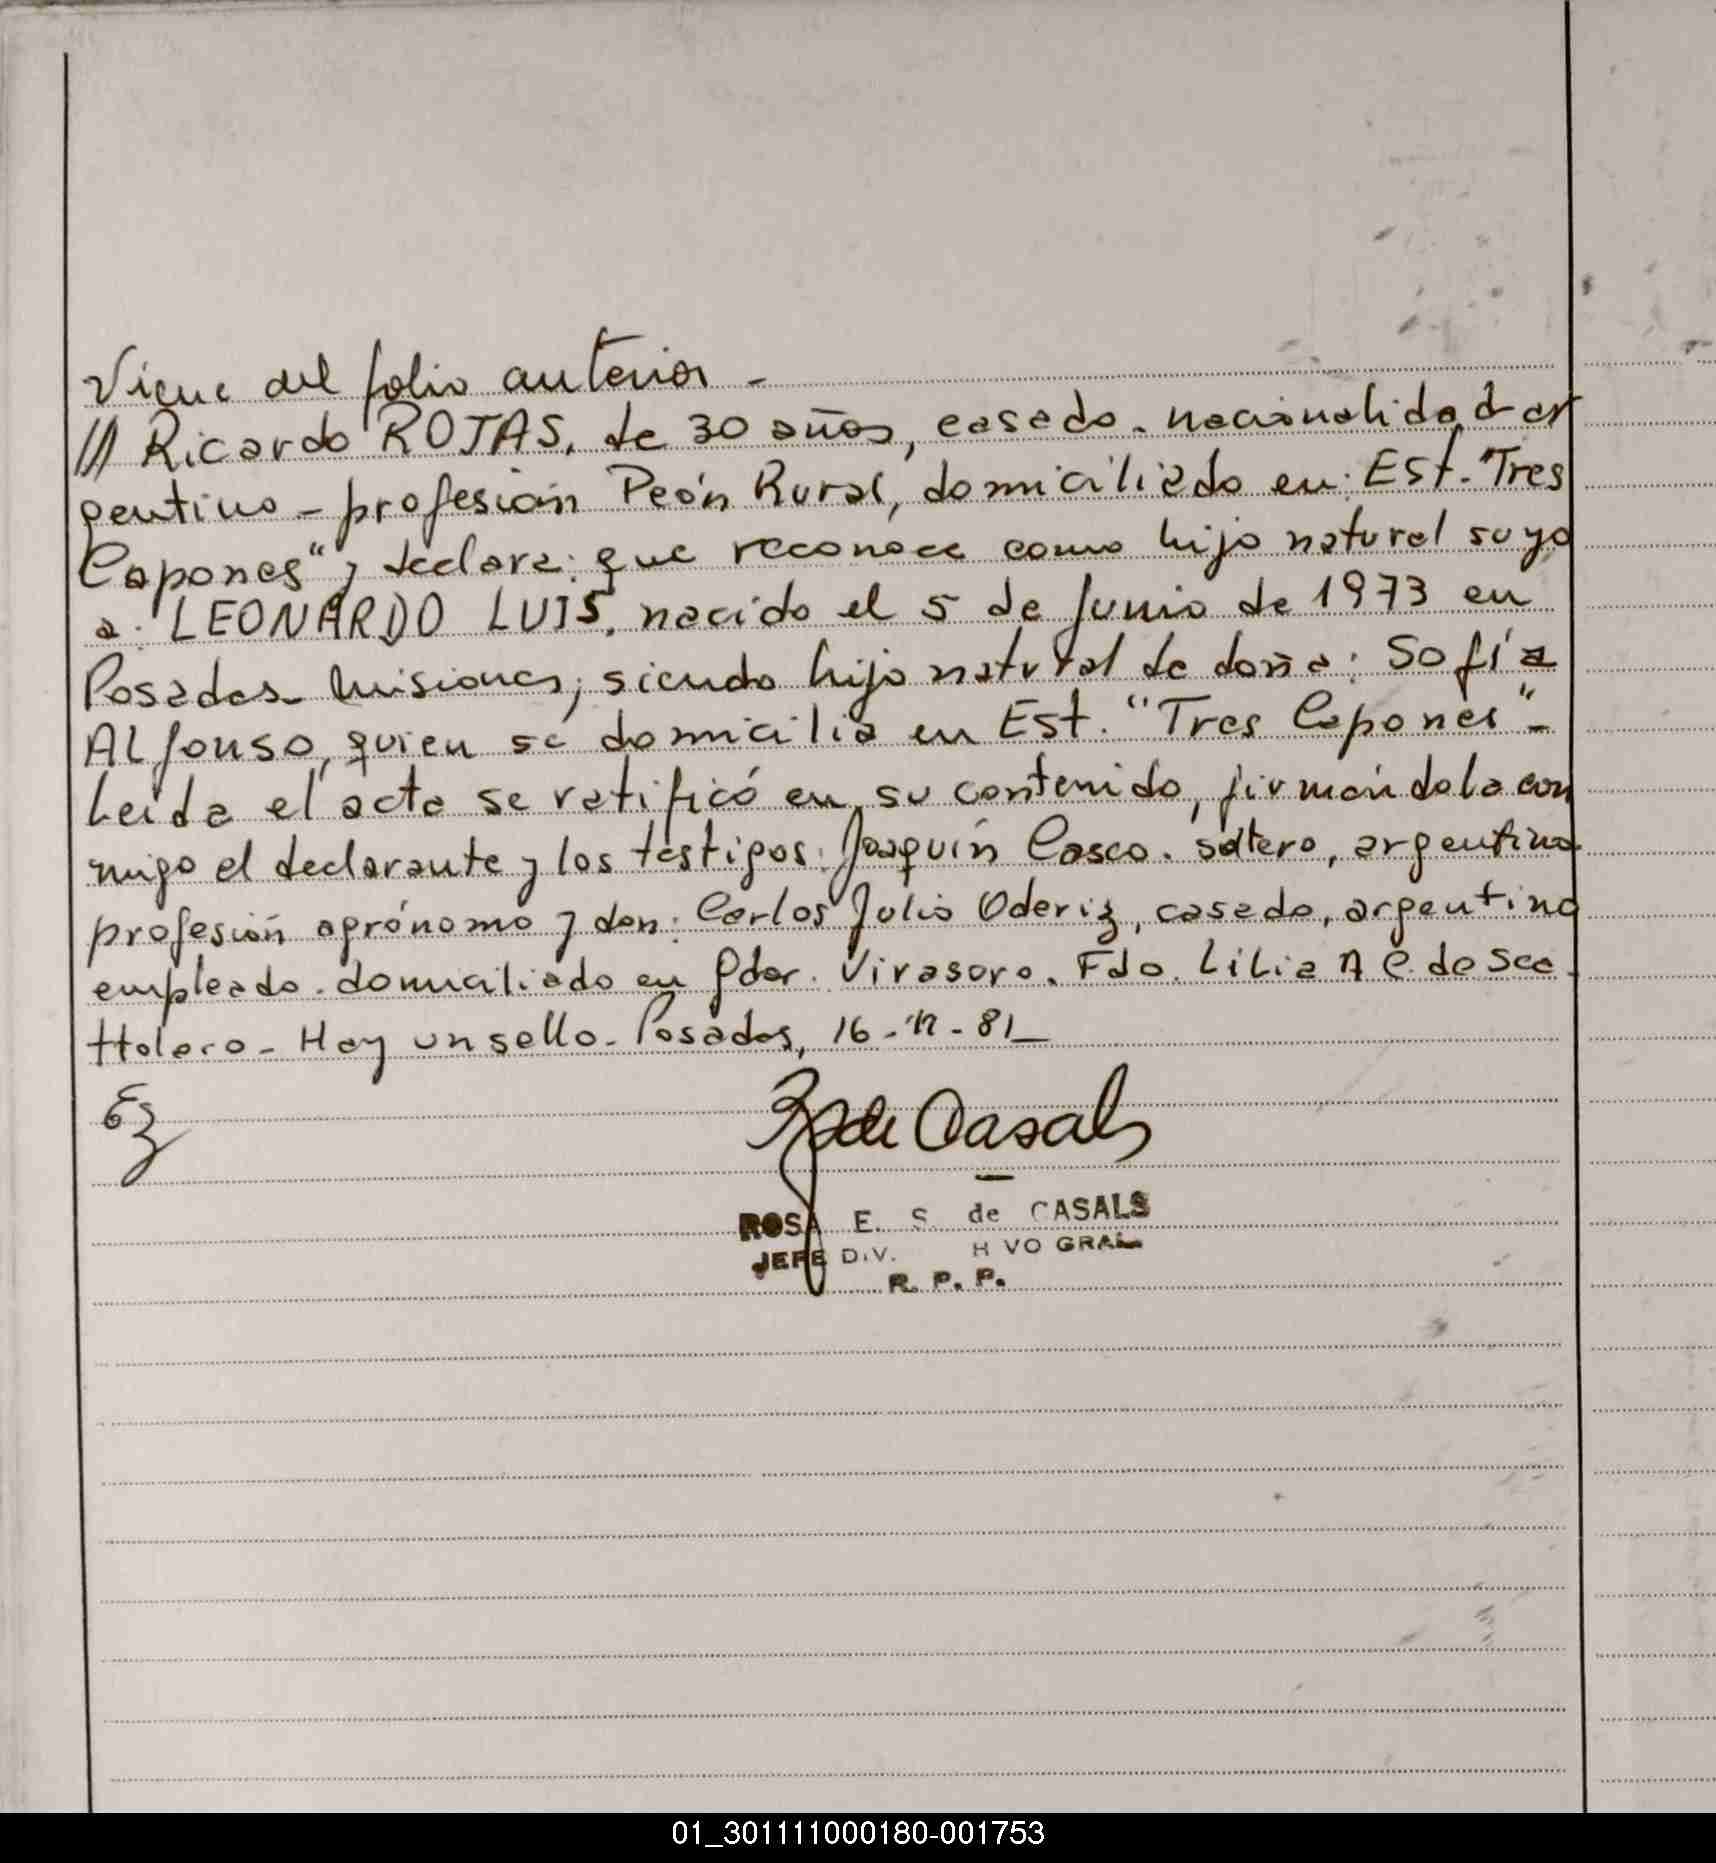 Viene del folio anterior -
/// Ricardo ROJAS, de 30 años, casado. nacionalidad ar
gentino - profesión Peón Rural, domiciliado en: Est. "Tres
Capones" y declara: que reconoce como hijo natural suyo
a: LEONARDO LUIS, nacido el 5 de Junio de 1973 en
Posadas Misiones; siendo hijo natural de doña: Sofía
Alfonso, quien se domicilia en Est. "Tres Capones" -
Leída el acta se ratificó en su contenido, firmándola con
migo el declarante y los testigos: Joaquín Casco. soltero, argentino
profesión agrónomo y don: Carlos Julio Oderiz, casado, argentino
empleado. domiciliado en Gdor. Virasoro. Fdo. Lilia A C. de
Hay un sello - Posadas, 16 - - 81 _
R de Casals
ROSA E. S. de CASALS
JEFE DIV. H VO GRAL
R. P. P.
01_301111000180-001753